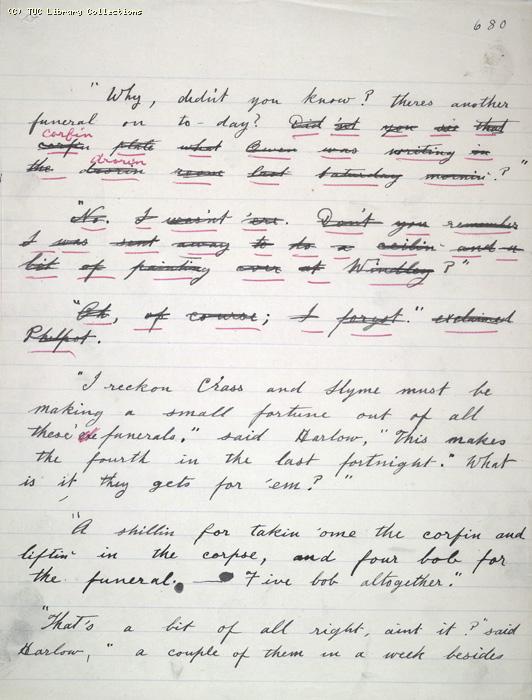 (C) TUC Library Collections
680
"Why, didn't you know? theres another
funeral on to-day? Did'nt you see that
corfin
corfin plate what Owen was writing in
drorin
the droorin room last Saturday mornin'?"
"No. I wasn't 'ere. Don't you remember
I was sent away to do a ceilin' and a
bit of painting over at Windley?"
"Oh, of course; I forgot." exclaimed
Philpot.
"I reckon Crass and Slyme must be
making a small fortune out of all
these 'ere funerals," said Harlow, "This makes
the fourth in the last fortnight." What
is it they gets for 'em?"
"A shillin for takin 'ome the corfin and
liftin' in the corpse, and four bob for
the funeral. — Five bob altogether."
"That's a bit of all right, aint it?" said
Harlow, "a couple of them in a week besides